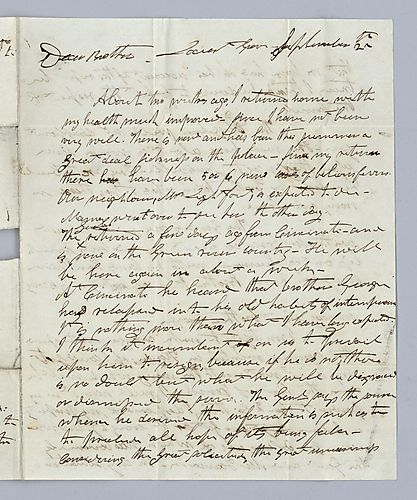 Dear Brother. Locust Grove September 12th
About two weeks ago I returned home with
my health much improved since I have not been
very well. There is now and has been this summer a
great deal of sickness on the place - since my return
there have been 5 or 6 new cases of bilious fevers.
Our neighbour Mr Lightfoot is expected to die -
Maj. went over to see him the other day.
He returned a few days ago from Cincinnati - and
is gone in the Green river country - He will
be home again in about a week -
At Cincinnati he heard that brother George
had relapsed into his old habits of intemperance
It is nothing more than what I have long expected
I think it incumbent on us to prevail
upon him to resign because if he is not there
is no doubt but what he will be disgraced
or dismissed the service. The Genl. says the source
whence he derived this information is such as to
to preclude all hope of its being false.
considering the great the great